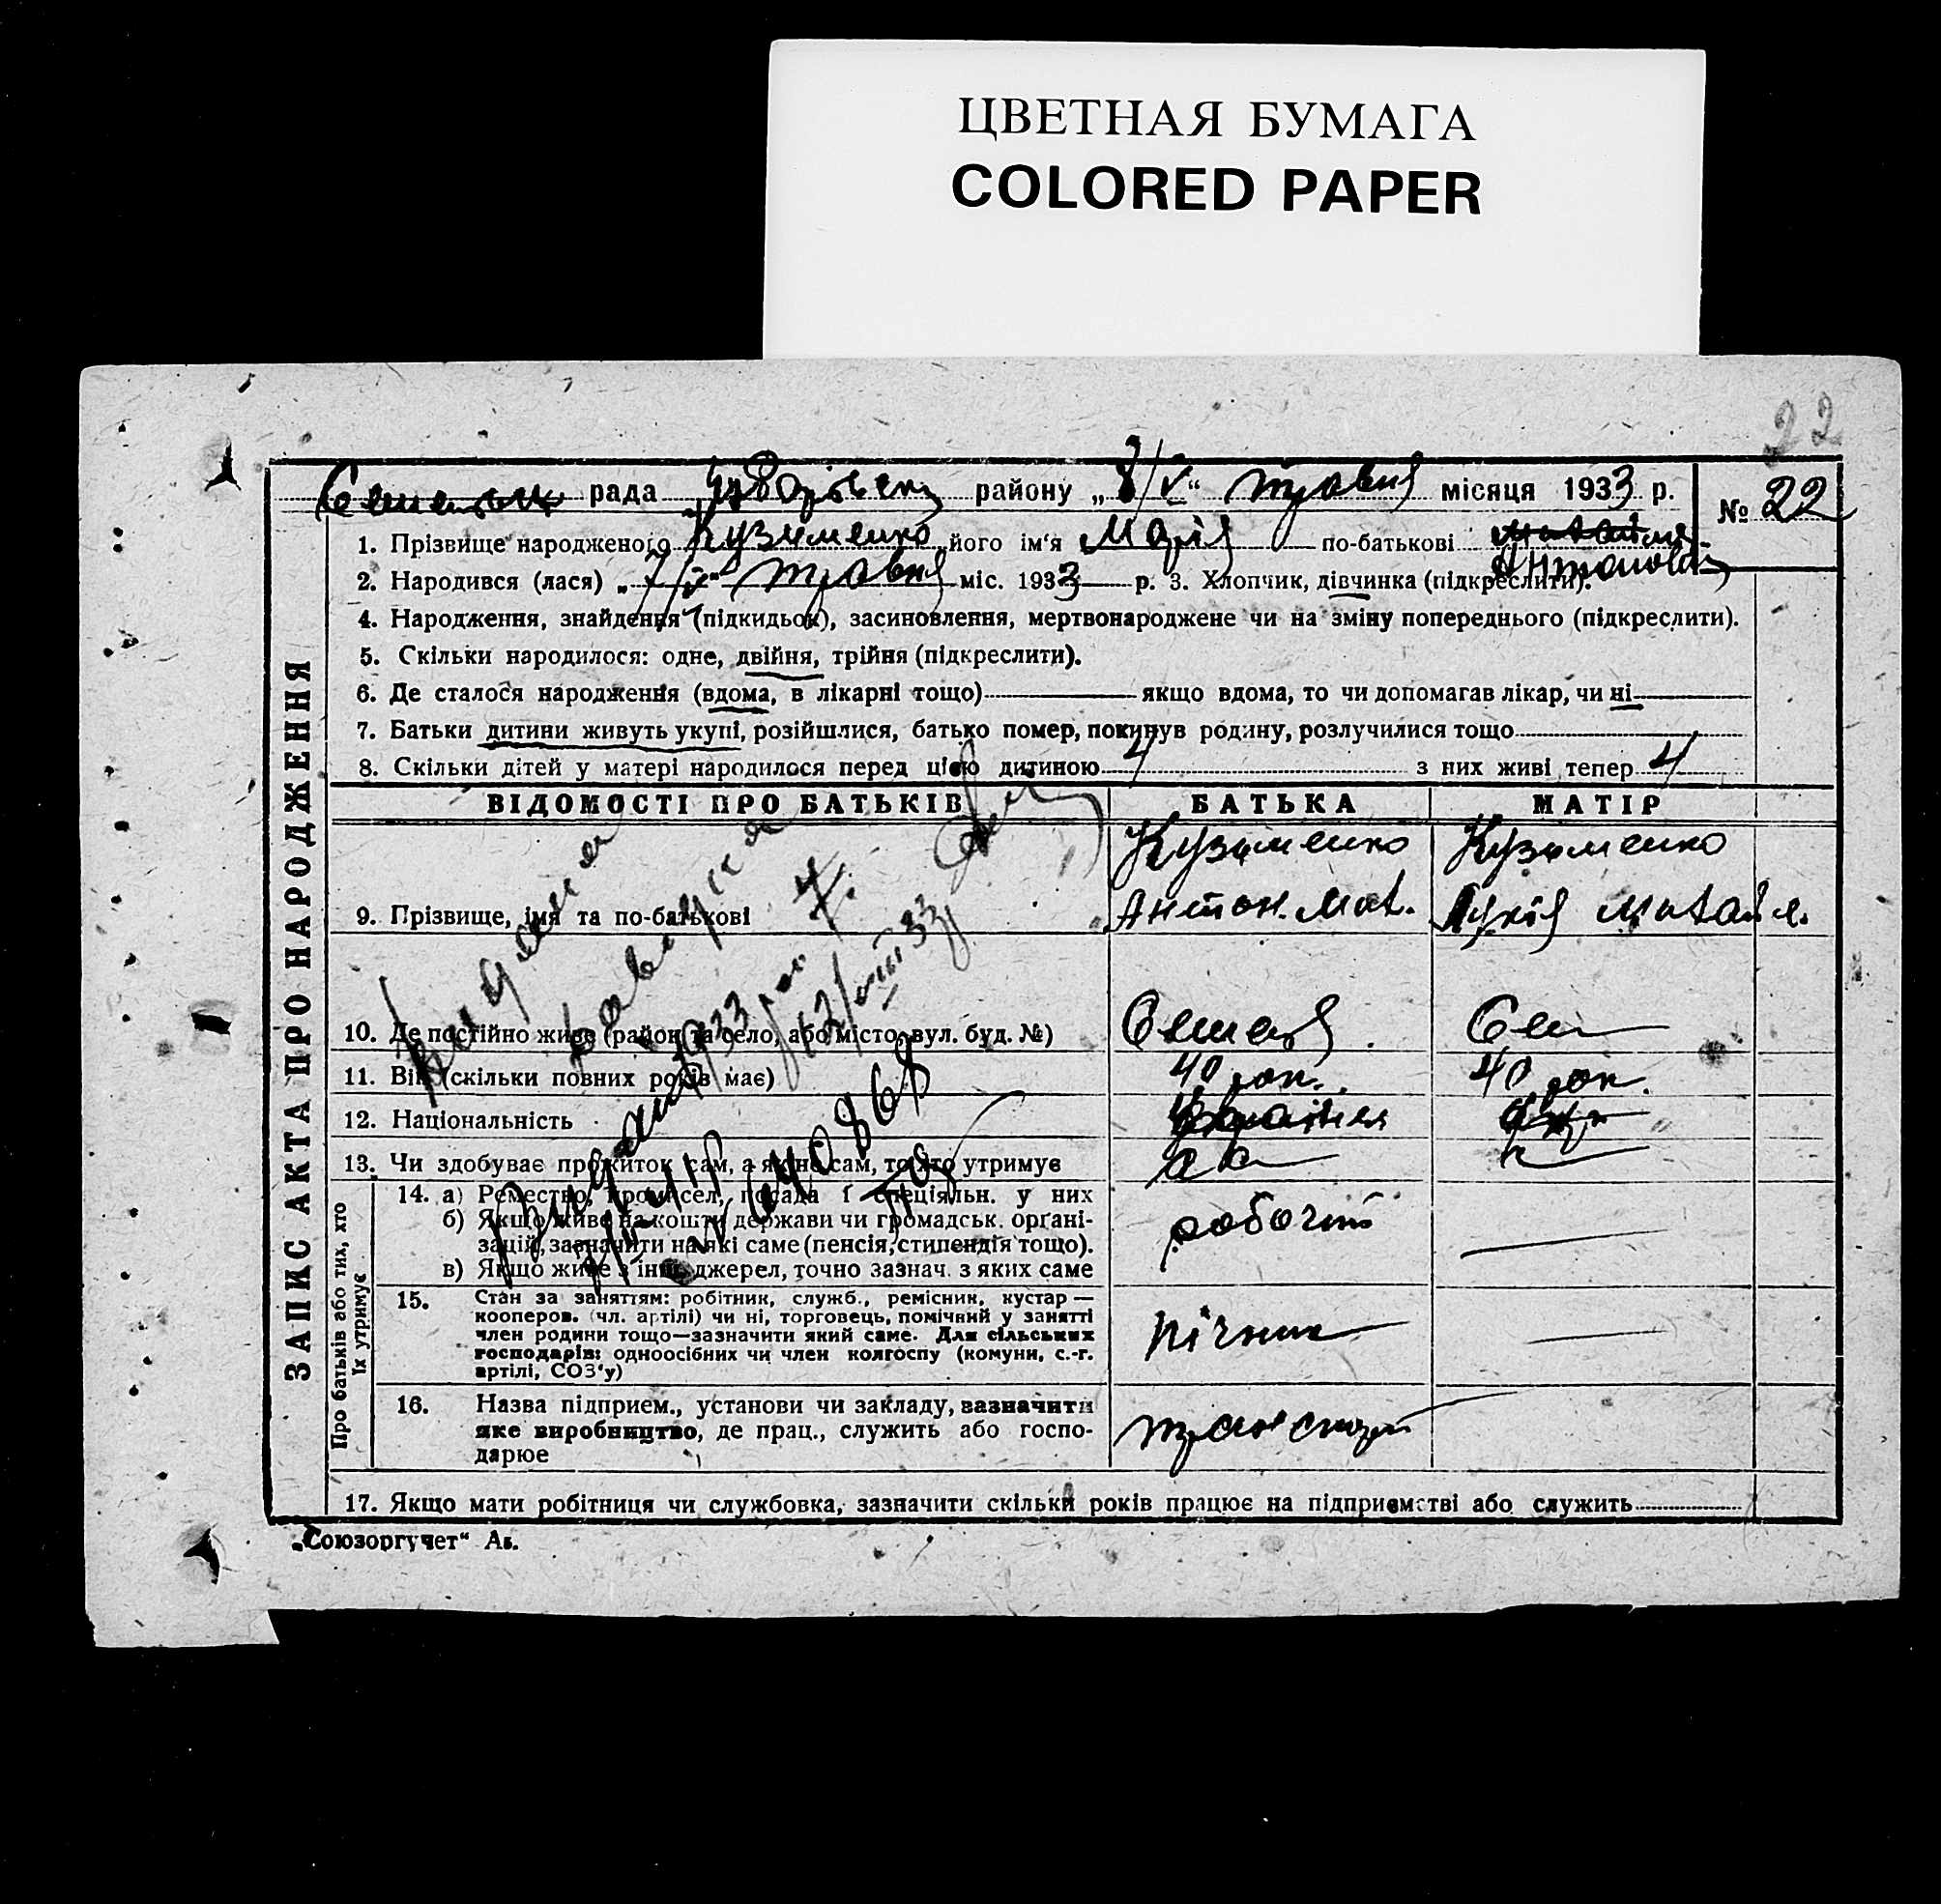 ЦВЕТНАЯ БУМАГА
COLORED PAPER
22
рада району „8/V“ травня місяця 1933 р.
№ 22
1. Прізвище народженого Кузьменко його ім'я Марія по-батькові
2. Народився (лася) „7/V“ травня міс. 1933 р. 3. Хлопчик, дівчинка (підкреслити).
4. Народження, знайдення (підкидьок), засиновлення, мертвонароджене чи на зміну попереднього (підкреслити).
5. Скільки народилося: одне, двійня, трійня (підкреслити).
6. Де сталося народження (вдома, в лікарні тощо) якщо вдома, то чи допомагав лікар, чи ні
7. Батьки дитини живуть укупі, розійшлися, батько помер, покинув родину, розлучилися тощо
8. Скільки дітей у матері народилося перед цією дитиною 4 з них живі тепер 4
ЗАПИС АКТА ПРО НАРОДЖЕННЯ
ВІДОМОСТІ ПРО БАТЬКІВ БАТЬКА МАТІР
Кузьменко Кузьменко
9. Прізвище, імя та по-батькові Антон. Мих.
10. Де постійно живе (район та село, або місто, вул. буд. №)
11. Вік (скільки повних років має) 40 рок. 40 рок.
12. Національність
13. Чи здобуває прожиток сам, а як не сам, то хто утримує
Про батьків або тих, хто їх утримує
14. а) Ремество, промисел, посада і спеціяльн. у них робочий
б) Якщо живе на кошти держави чи громадськ. органі-
зацій, зазначити на які саме (пенсія, стипендія тощо).
в) Якщо живе з інш. джерел, точно зазнач. з яких саме
15. Стан за заняттям: робітник, служб., ремісник, кустар —
кооперов. (чл. артілі) чи ні, торговець, помічний у занятті
член родини тощо—зазначити який саме. Для сільських
господарів: одноосібних чи член колгоспу (комуни, с.-г.
артілі, СОЗ'у)
пічник
16. Назва підприем., установи чи закладу, зазначити
яке виробництво, де прац., служить або госпо-
дарює
транспорт
17. Якщо мати робітниця чи службовка, зазначити скільки років працює на підприємстві або служить
„Союзоргучет“